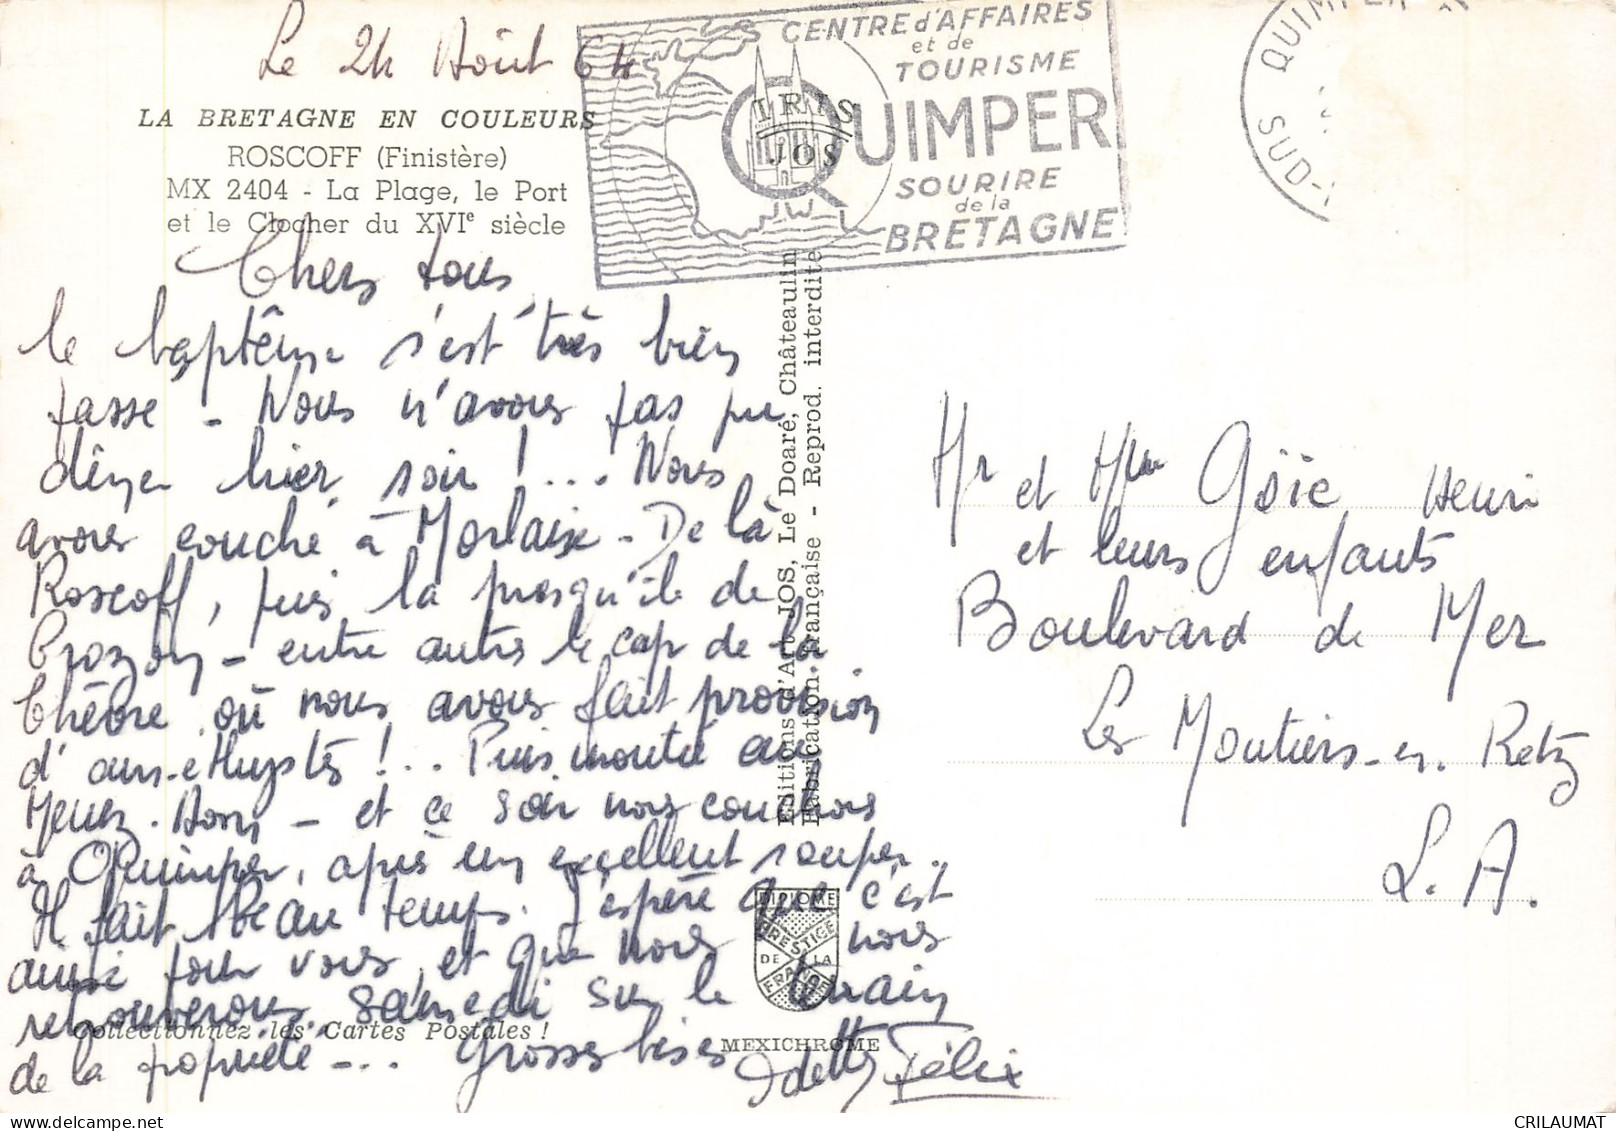 Le 24 Août 64
LA BRETAGNE EN COULEURS
ROSCOFF (Finistère)
MX 2404 - La Plage, le Port
et le Clocher du XVIe siècle
CENTRE d'AFFAIRES
et de
TOURISME
QUIMPER
SOURIRE
de la
BRETAGNE
IRIS
JOS
QUIMPER
SUD-
Chers tous
le baptême s'est très bien
passé - Nous n'avons pas pu
dîner hier soir ! ... Nous
avons couché à Morlaix - De là
Roscoff, puis la presqu'île de
Crozon - entre autre le cap de la
Chèvre où nous avons fait provision
d'améthystes ! .. Puis montée au
Menez-Hom - et ce soir nous couchons
à Quimper, après un excellent souper.
Il fait beau temps. J'espère que c'est
ainsi pour vous, et que nous nous
retrouverons samedi sur le terrain
de la propriété - ... Grosses bises
Odette, Félix
Editions d'Art JOS, Le Doaré, Châteaulin
Fabrication Française - Reprod. interdite
Mr et Mme Goïc Henri
et leurs enfants
Boulevard de Mer
Les Moutiers-en-Retz
L. A.
DIPLOME
PRESTIGE
DE LA
FRANCE
Collectionnez les Cartes Postales !
MEXICHROME
CRILAUMAT